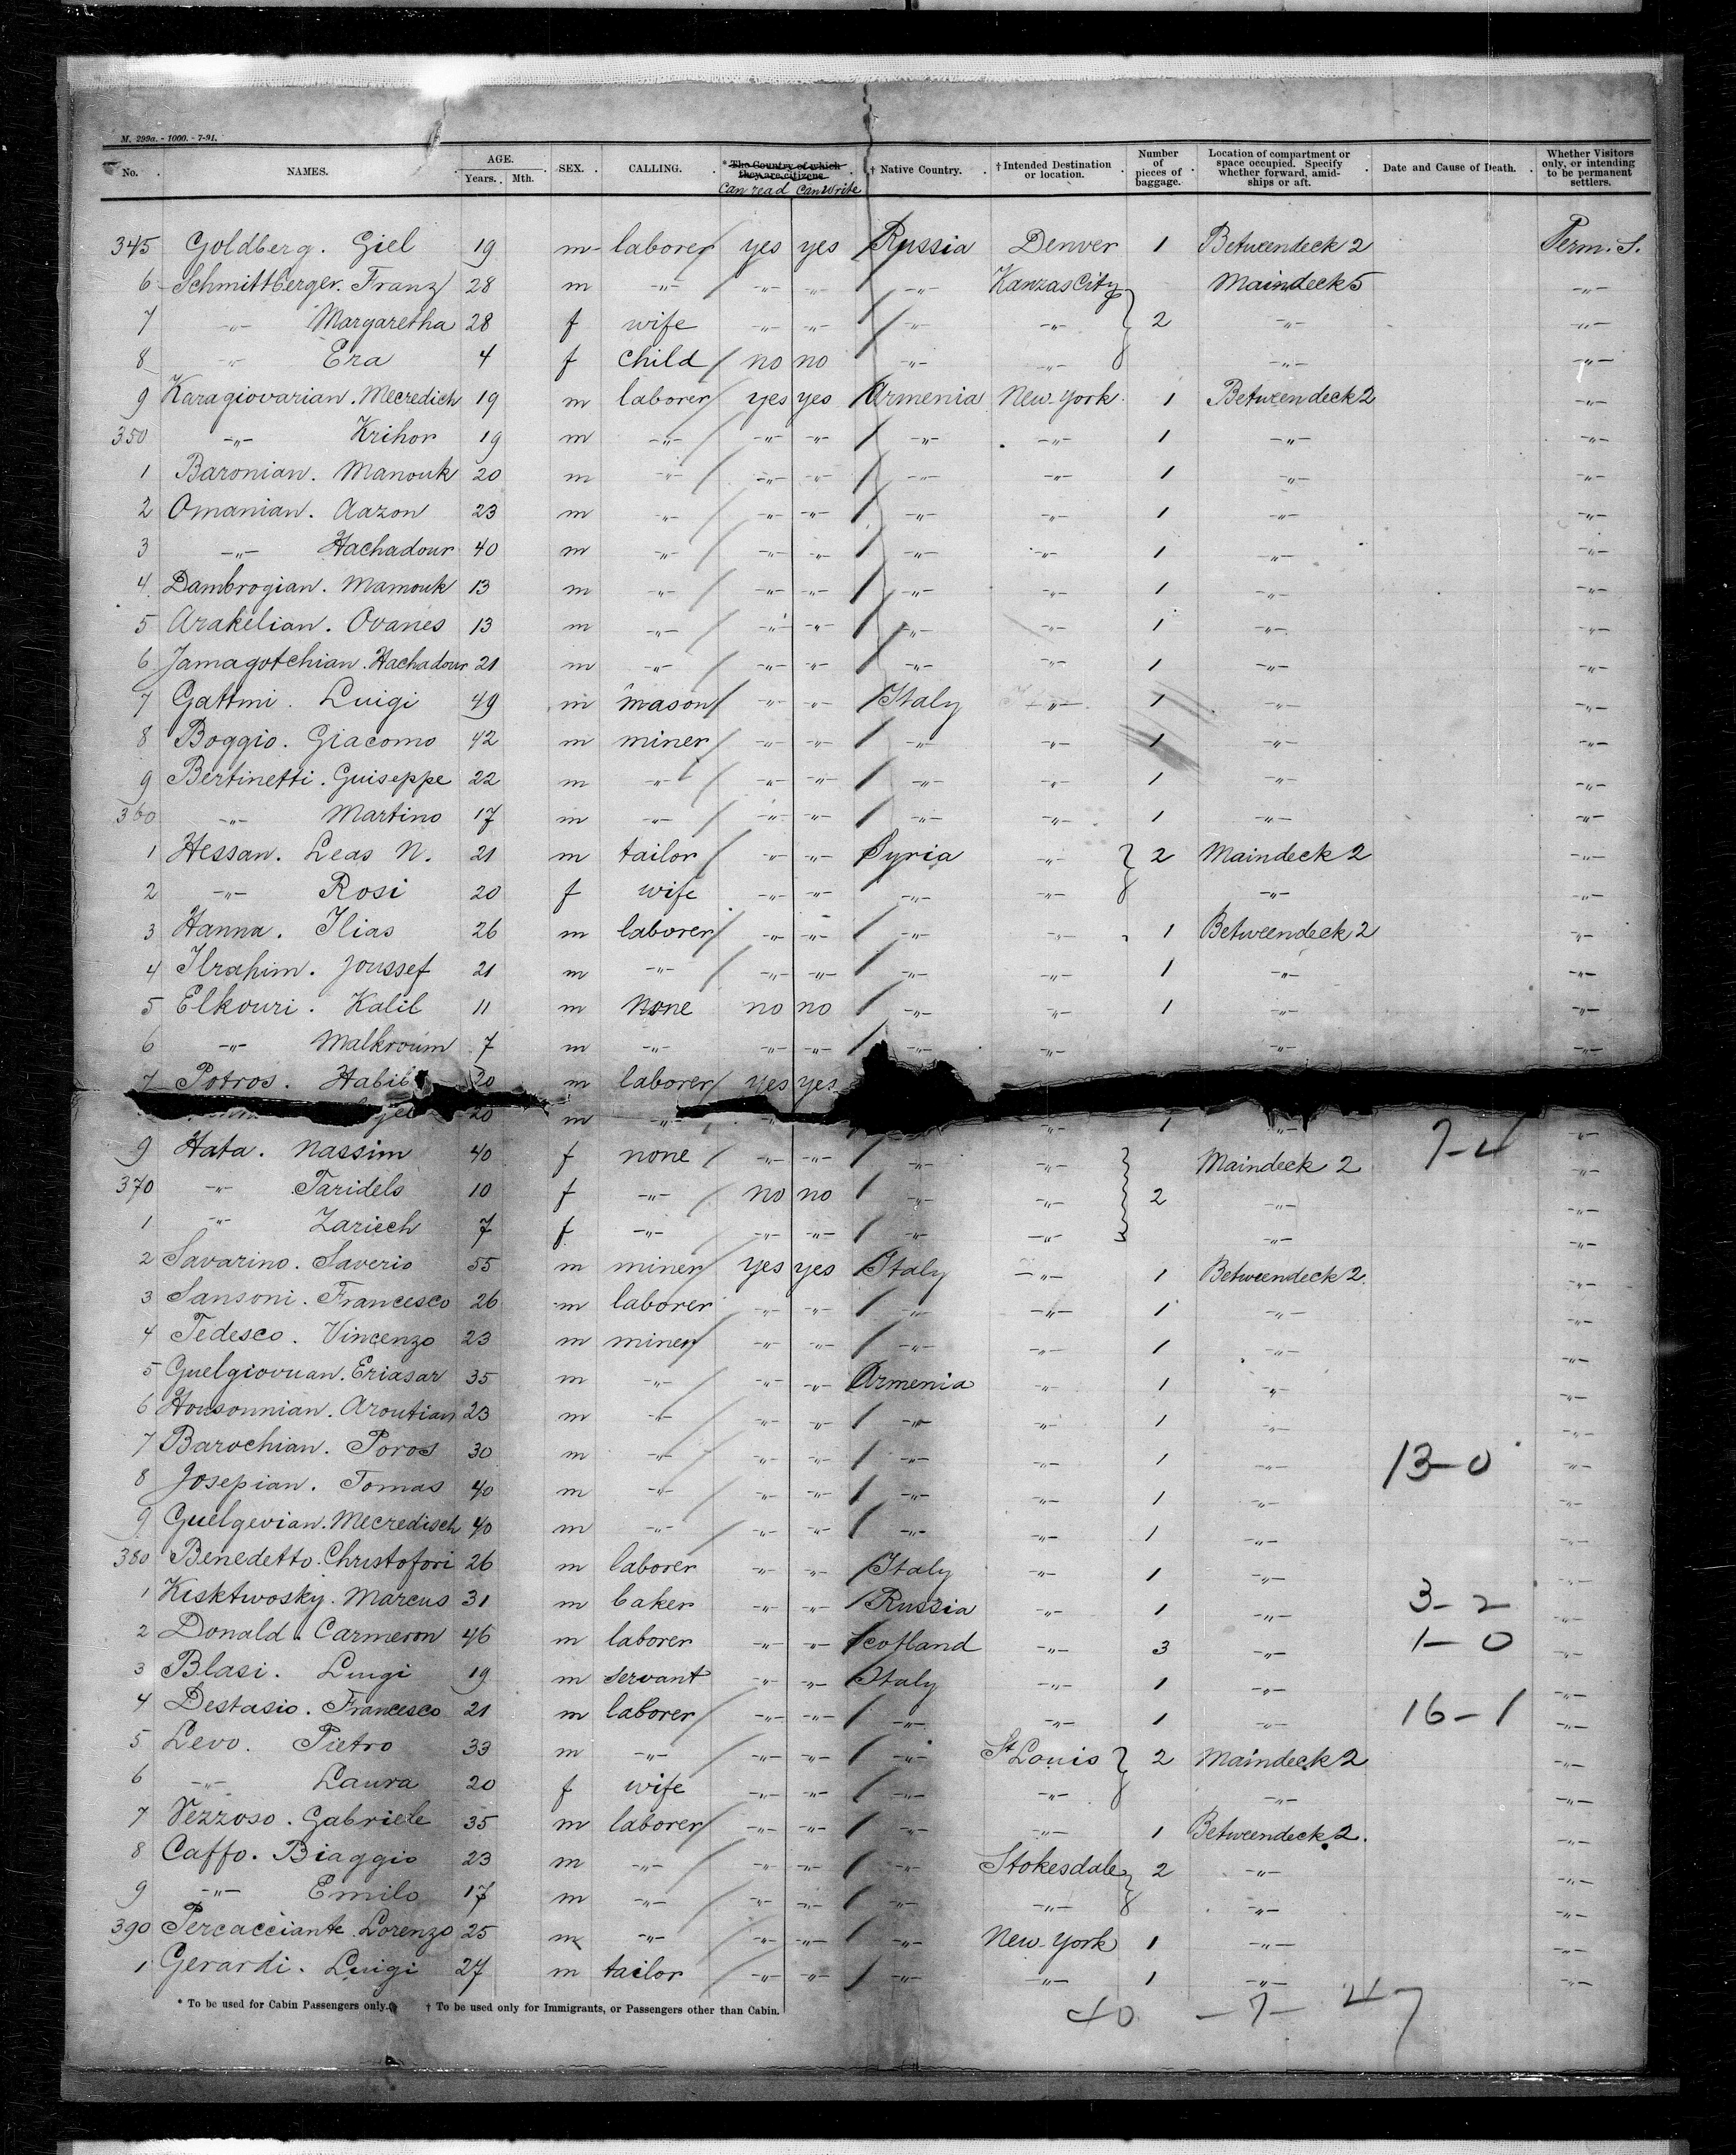 M. 299a. - 1000. - 7-91.
No. NAMES. AGE. Years. Mth. SEX. CALLING. * The Country of which they are citizens. Can read Can write † Native Country. † Intended Destination or location. Number of pieces of baggage. Location of compartment or space occupied. Specify whether forward, amidships or aft. Date and Cause of Death. Whether Visitors only, or intending to be permanent settlers.
345 Goldberg. Giel 19 m laborer yes yes Russia Denver 1 Betweendeck 2 Perm. S.
6 Schmittberger. Franz 28 m -"- -"- -"- -"- Kanzas City Maindeck 5 -"-
7 -"- Margaretha 28 f wife -"- -"- -"- -"- 2 -"- -"-
8 -"- Era 4 f child no no -"- -"- -"- -"-
9 Karagiovarian. Mecredich 19 m laborer yes yes Armenia New-York. 1 Betweendeck 2 -"-
350 -"- Krihor 19 m -"- -"- -"- -"- -"- 1 -"- -"-
1 Baronian. Manouk 20 m -"- -"- -"- -"- -"- 1 -"- -"-
2 Omanian. Aazon 23 m -"- -"- -"- -"- -"- 1 -"- -"-
3 -"- Hachadour 40 m -"- -"- -"- -"- -"- 1 -"- -"-
4 Dambrogian. Mamouk 13 m -"- -"- -"- -"- -"- 1 -"- -"-
5 Arakelian. Ovanes 13 m -"- -"- -"- -"- -"- 1 -"- -"-
6 Jamagotchian. Hachadour 21 m -"- -"- -"- -"- -"- 1 -"- -"-
7 Gattmi. Luigi 49 m mason -"- -"- Italy -"- 1 -"- -"-
8 Boggio. Giacomo 42 m miner -"- -"- -"- -"- 1 -"- -"-
9 Bertinetti. Guiseppe 22 m -"- -"- -"- -"- -"- 1 -"- -"-
360 -"- Martino 17 m -"- -"- -"- -"- -"- 1 -"- -"-
1 Hessan. Leas N. 21 m tailor -"- -"- Syria -"- 2 Maindeck 2 -"-
2 -"- Rosi 20 f wife -"- -"- -"- -"- -"- -"-
3 Hanna. Ilias 26 m laborer -"- -"- -"- -"- 1 Betweendeck 2 -"-
4 Ibrahim. Joussef 21 m -"- -"- -"- -"- -"- 1 -"- -"-
5 Elkouri. Kalil 11 m none no no -"- -"- 1 -"- -"-
6 -"- Malkroum 7 m -"- -"- -"- -"- -"- -"-
7 Potros. Habib 20 m laborer yes yes
20 m -"- -"- 1 -"- -"-
9 Hata. Nassim 40 f none -"- -"- -"- -"- Maindeck 2 7-4 -"-
370 -"- Taridels 10 f -"- no no -"- -"- 2 -"- -"-
1 -"- Zariech 7 f -"- -"- -"- -"- -"- -"- -"-
2 Savarino. Saverio 55 m miner yes yes Italy -"- 1 Betweendeck 2. -"-
3 Sansoni. Francesco 26 m laborer -"- -"- -"- -"- 1 -"- -"-
4 Tedesco. Vincenzo 23 m miner -"- -"- -"- -"- 1 -"- -"-
5 Guelgiovuan. Eriasar 35 m -"- -"- -"- Armenia -"- 1 -"- -"-
6 Housonnian. Aroutian 23 m -"- -"- -"- -"- -"- 1 -"- -"-
7 Barochian. Poros 30 m -"- -"- -"- -"- -"- 1 -"- 13-0 -"-
8 Josepian. Tomas 40 m -"- -"- -"- -"- -"- 1 -"- -"-
9 Guelgevian. Mecredisch 40 m -"- -"- -"- -"- -"- 1 -"- -"-
380 Benedetto. Christofori 26 m laborer -"- -"- Italy -"- 1 -"- -"-
1 Kisktwosky. Marcus 31 m baker -"- -"- Russia -"- 1 -"- 3-2 -"-
2 Donald. Carmeron 46 m laborer -"- -"- Scotland -"- 3 -"- 1-0 -"-
3 Blasi. Luigi 19 m servant -"- -"- Italy -"- 1 -"- -"-
4 Destasio. Francesco 21 m laborer -"- -"- -"- -"- 1 -"- 16-1 -"-
5 Levo. Pietro 33 m -"- -"- -"- -"- St Louis 2 Maindeck 2 -"-
6 -"- Laura 20 f wife -"- -"- -"- -"- -"- -"-
7 Vezzoso. Gabriele 35 m laborer -"- -"- -"- -"- 1 Betweendeck 2. -"-
8 Caffo. Biaggio 23 m -"- -"- -"- -"- Stokesdale 2 -"- -"-
9 -"- Emilo 17 m -"- -"- -"- -"- -"- -"- -"-
390 Percacciante Lorenzo 25 m -"- -"- -"- -"- New-York 1 -"- -"-
1 Gerardi. Luigi 27 m tailor -"- -"- -"- -"- 1 -"- -"-
* To be used for Cabin Passengers only. † To be used only for Immigrants, or Passengers other than Cabin.
40 - 7 - 47